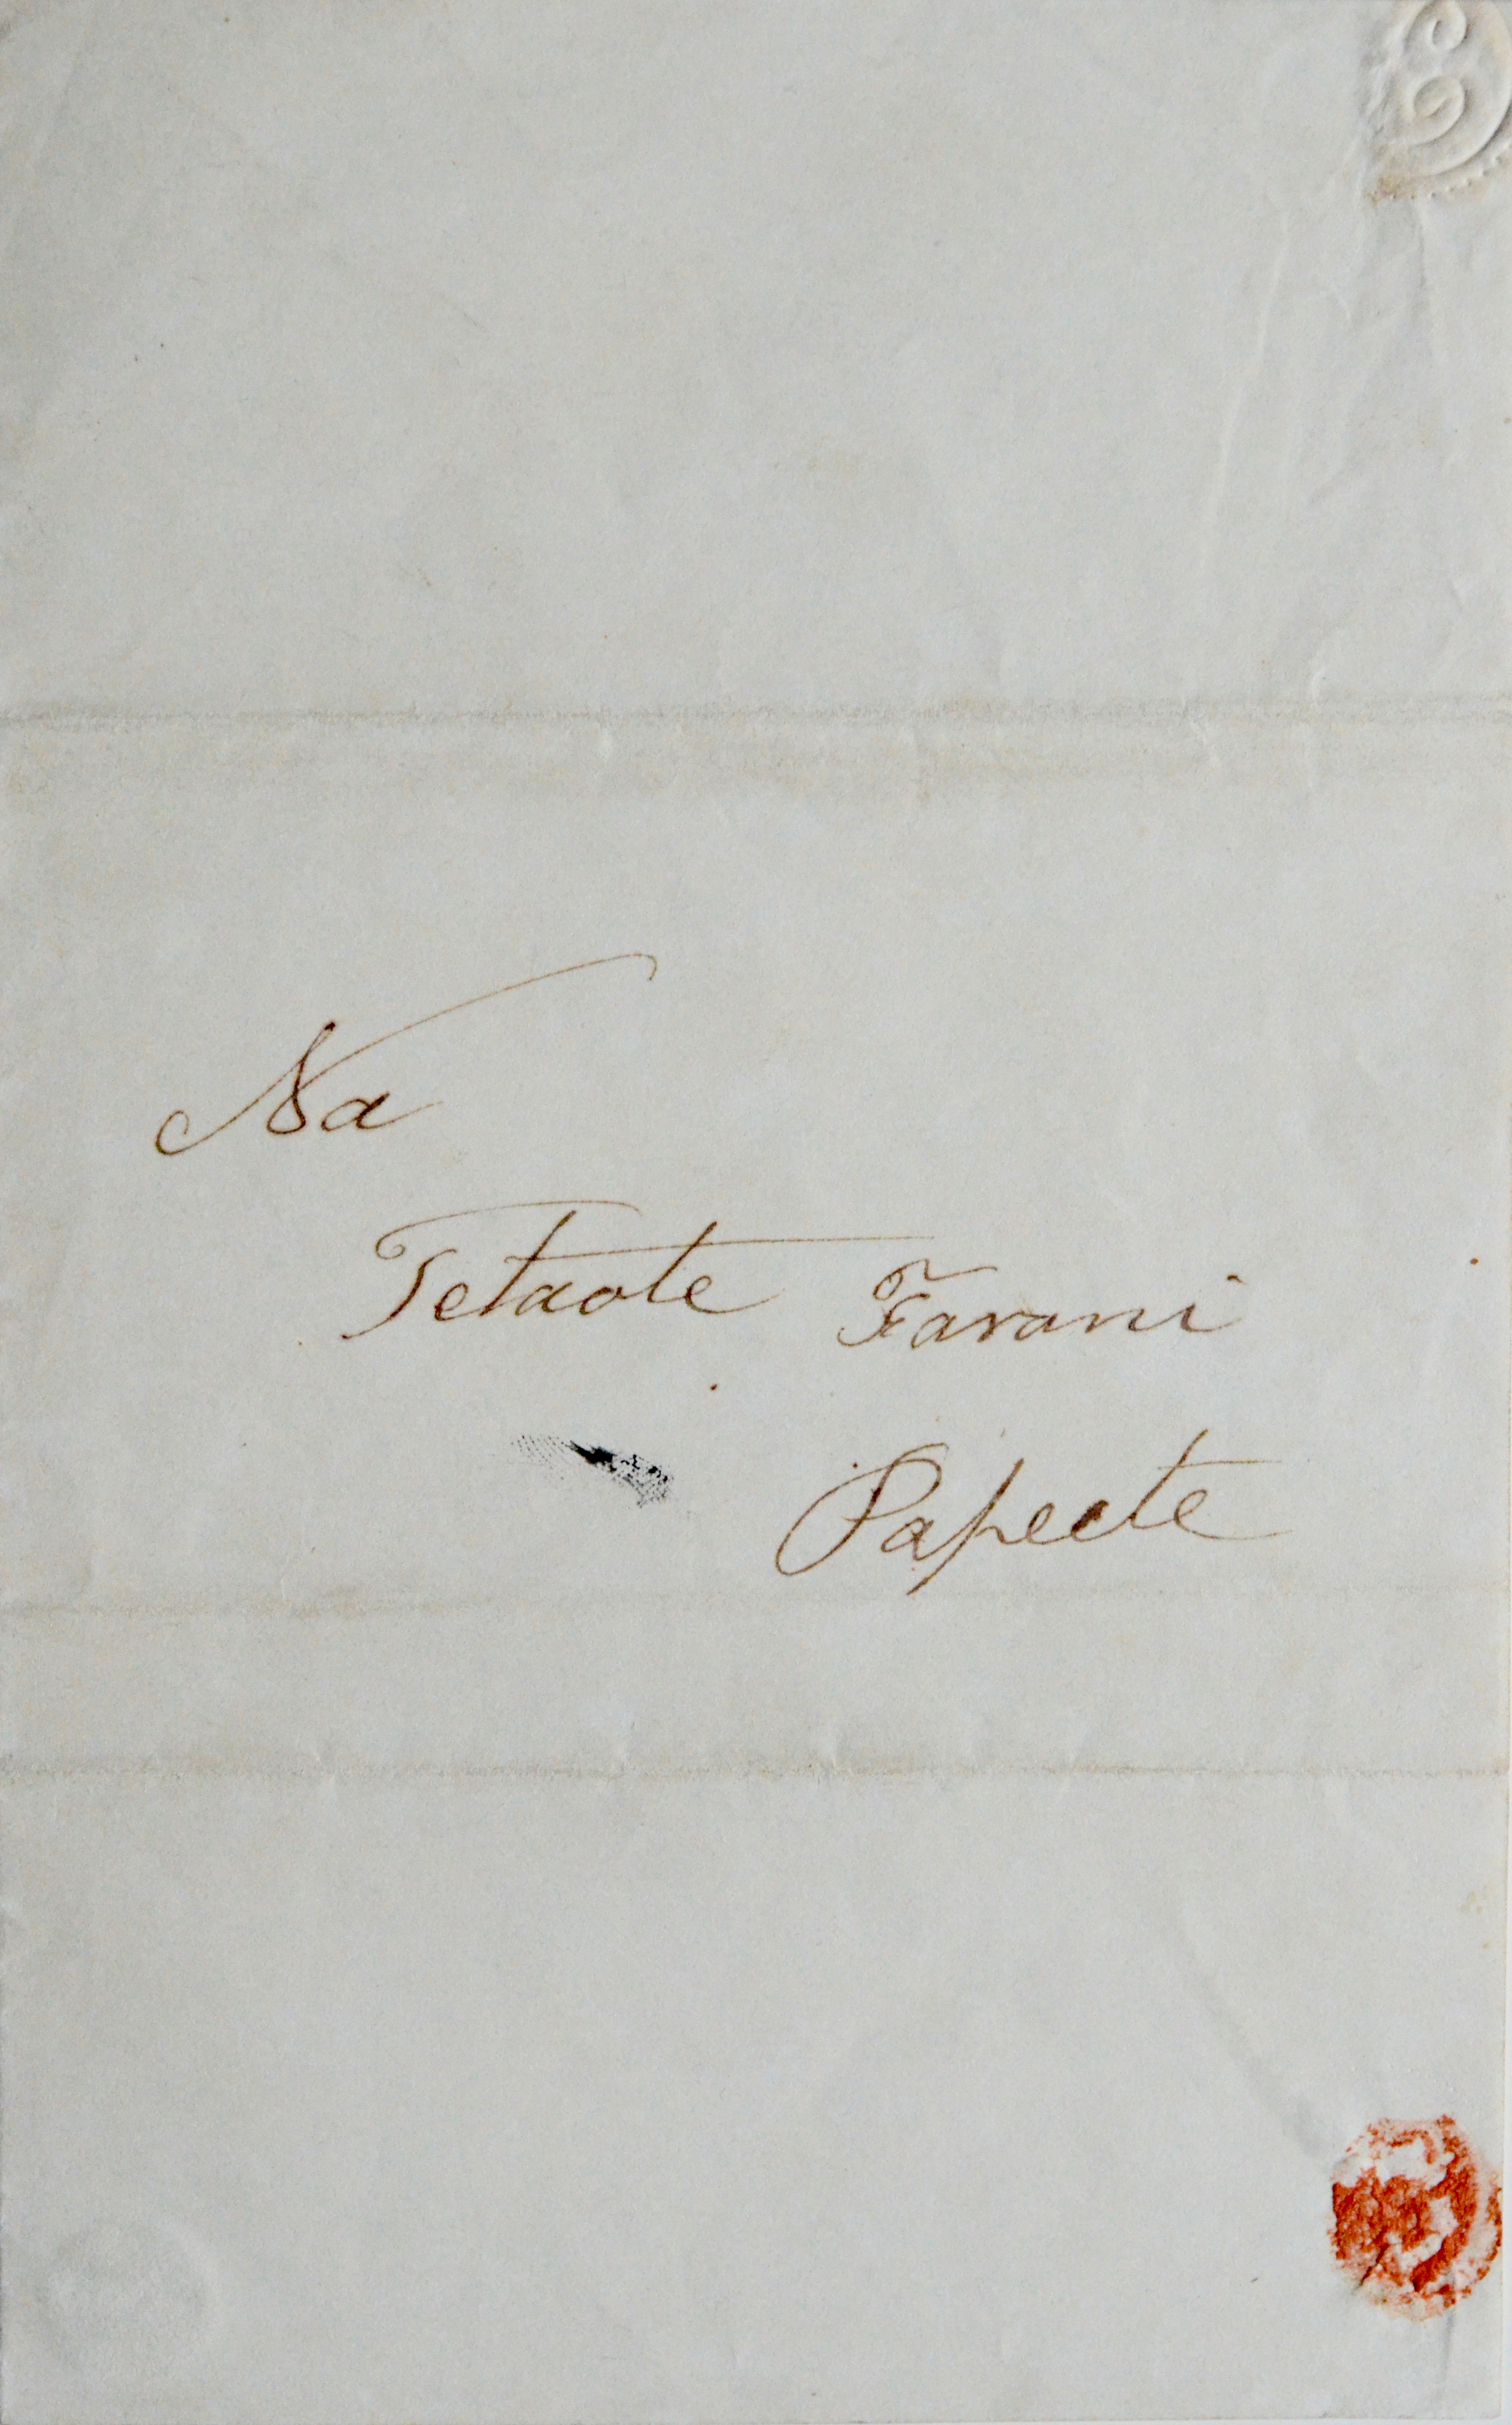 Na
Tetaote Farani
Papeete